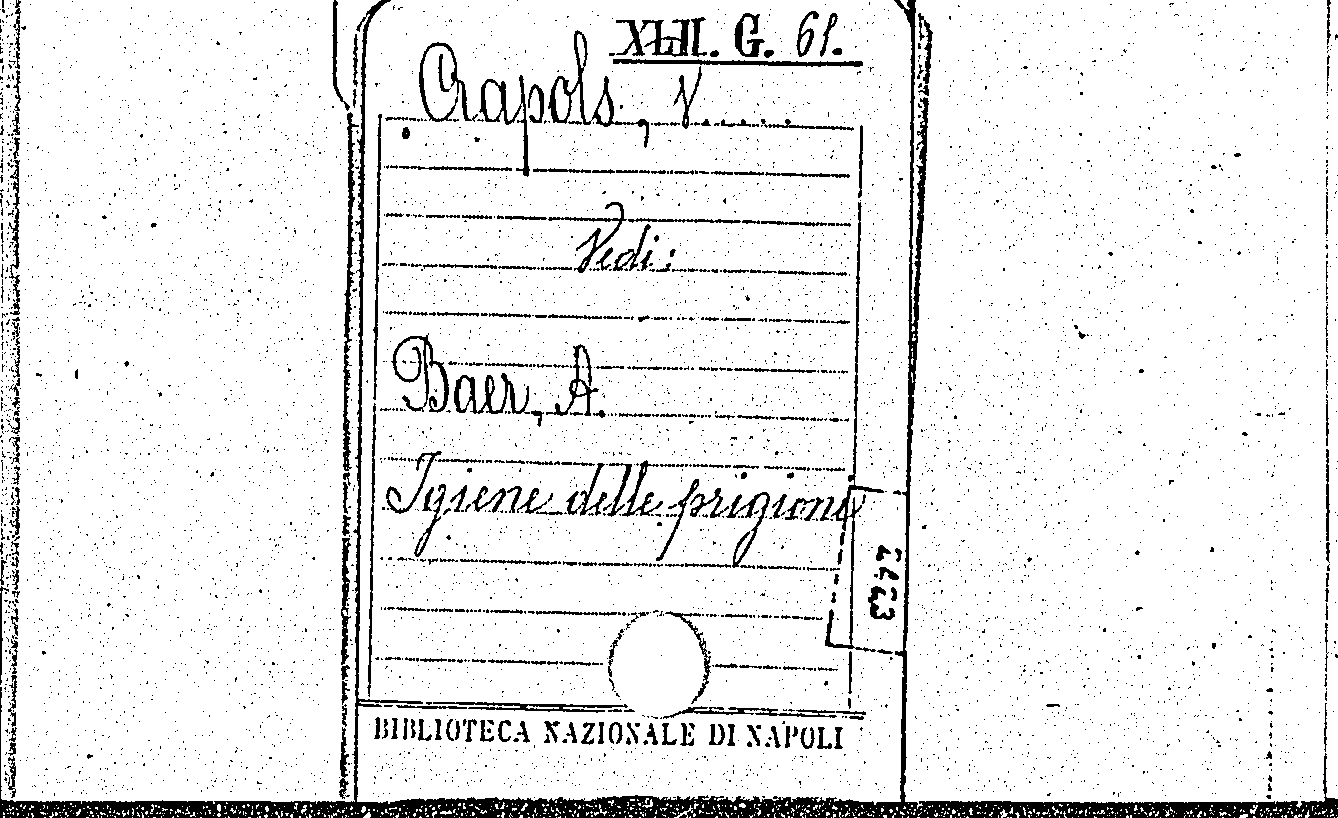 XLII. G. 61.
Crapols, V.....
Vedi:
Baer, A.
Igiene delle prigioni
BIBLIOTECA NAZIONALE DI NAPOLI